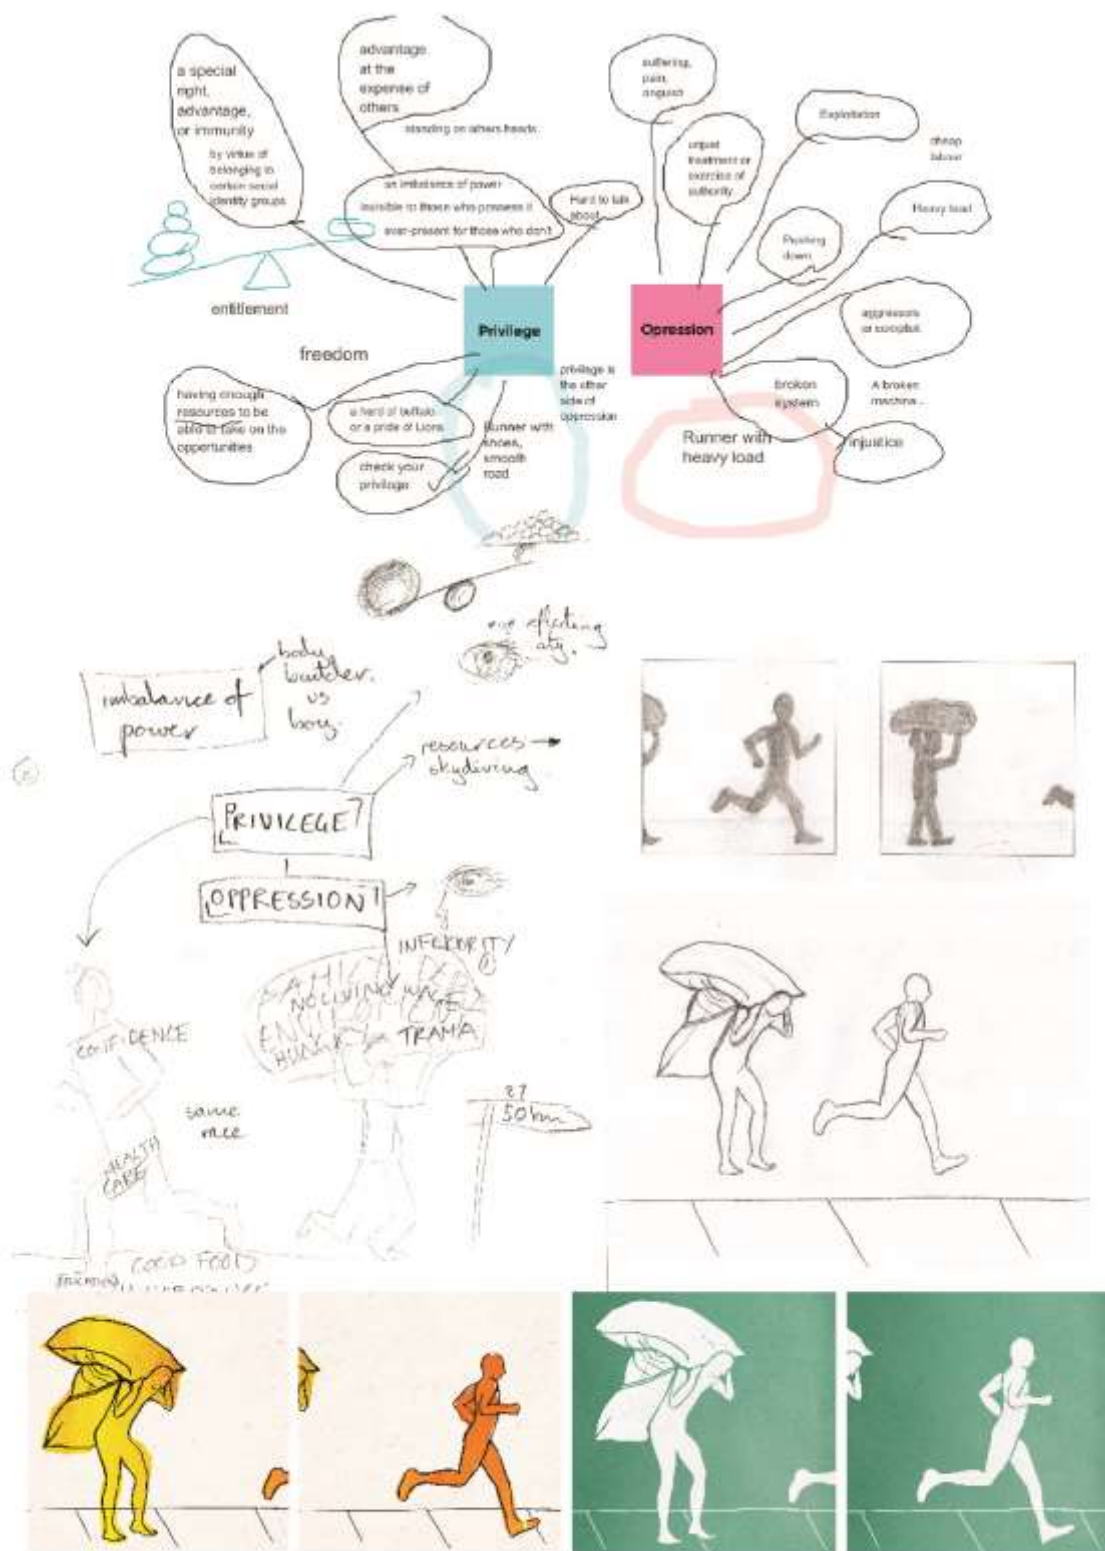 a special
right,
advantage,
or immunity
by virtue of
belonging to
certain social
identity groups
advantage
at the
expense of
others
standing on others heads
an imbalance of power
invisible to those who possess it
ever-present for those who don't
Hard to talk
about
entitlement
freedom
Privilege
having enough
resources to be
able to take on the
opportunities
a herd of buffalo
or a pride of Lions
check your
privilege
Runner with
shoes,
smooth
road
privilege is
the other
side of
oppression
suffering,
pain,
anguish
unjust
treatment or
exercise of
authority
Exploitation
cheap
labour
Heavy load
Pushing
down
aggressors
or
Opression
broken
system
A broken
machine...
injustice
Runner with
heavy load
imbalance of
power
body
builder.
vs
boy.
eye
resources
skydiving
PRIVILEGE
OPPRESSION
INFERIORITY
NO LIVING WAGE
TRAMA
CONFIDENCE
same
race
HEALTH
CARE
50km
GOOD FOOD
EDUCATION